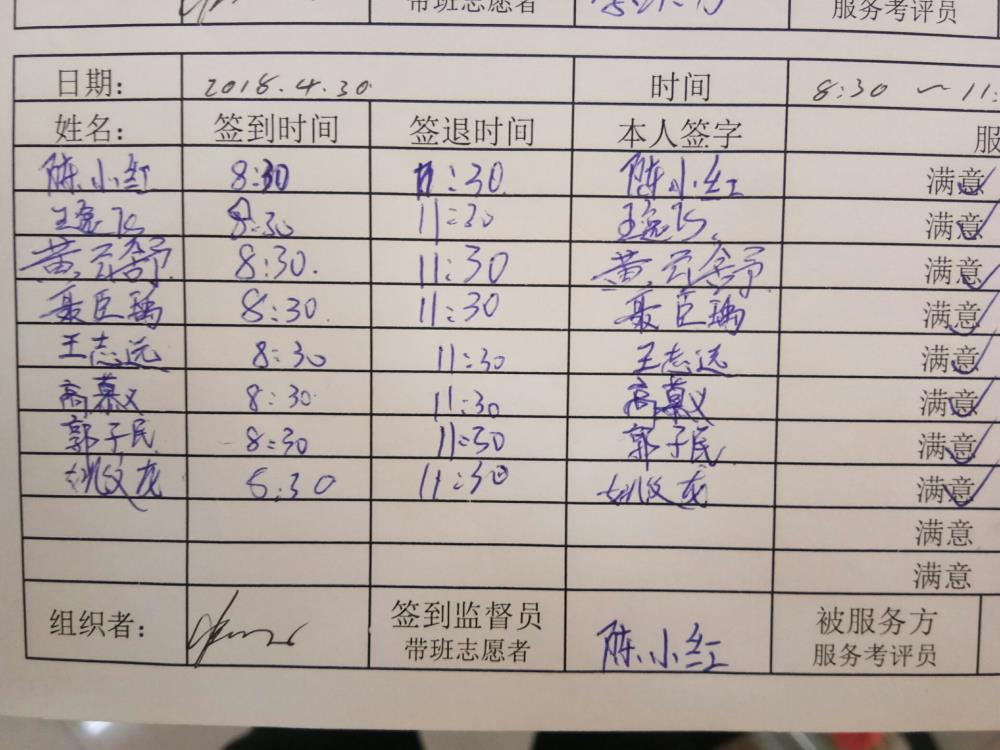 带班志愿者 服务考评员
日期: 2018.4.30 时间 8:30 ~ 11:
姓名: 签到时间 签退时间 本人签字 服
陈小红 8:30 11:30 陈小红 满意
王逸飞 8:30 11:30 王逸飞 满意
黄云舒 8:30. 11:30 黄云舒 满意
聂臣瑀 8:30. 11:30 聂臣瑀 满意
王志远 8:30 11:30 王志远 满意
高慕义 8:30 11:30 高慕义 满意
郭子民 8:30 11:30 郭子民 满意
姚文龙 8:30 11:30 姚文龙 满意
满意
满意
组织者: 签到监督员 陈小红 被服务方
带班志愿者 服务考评员